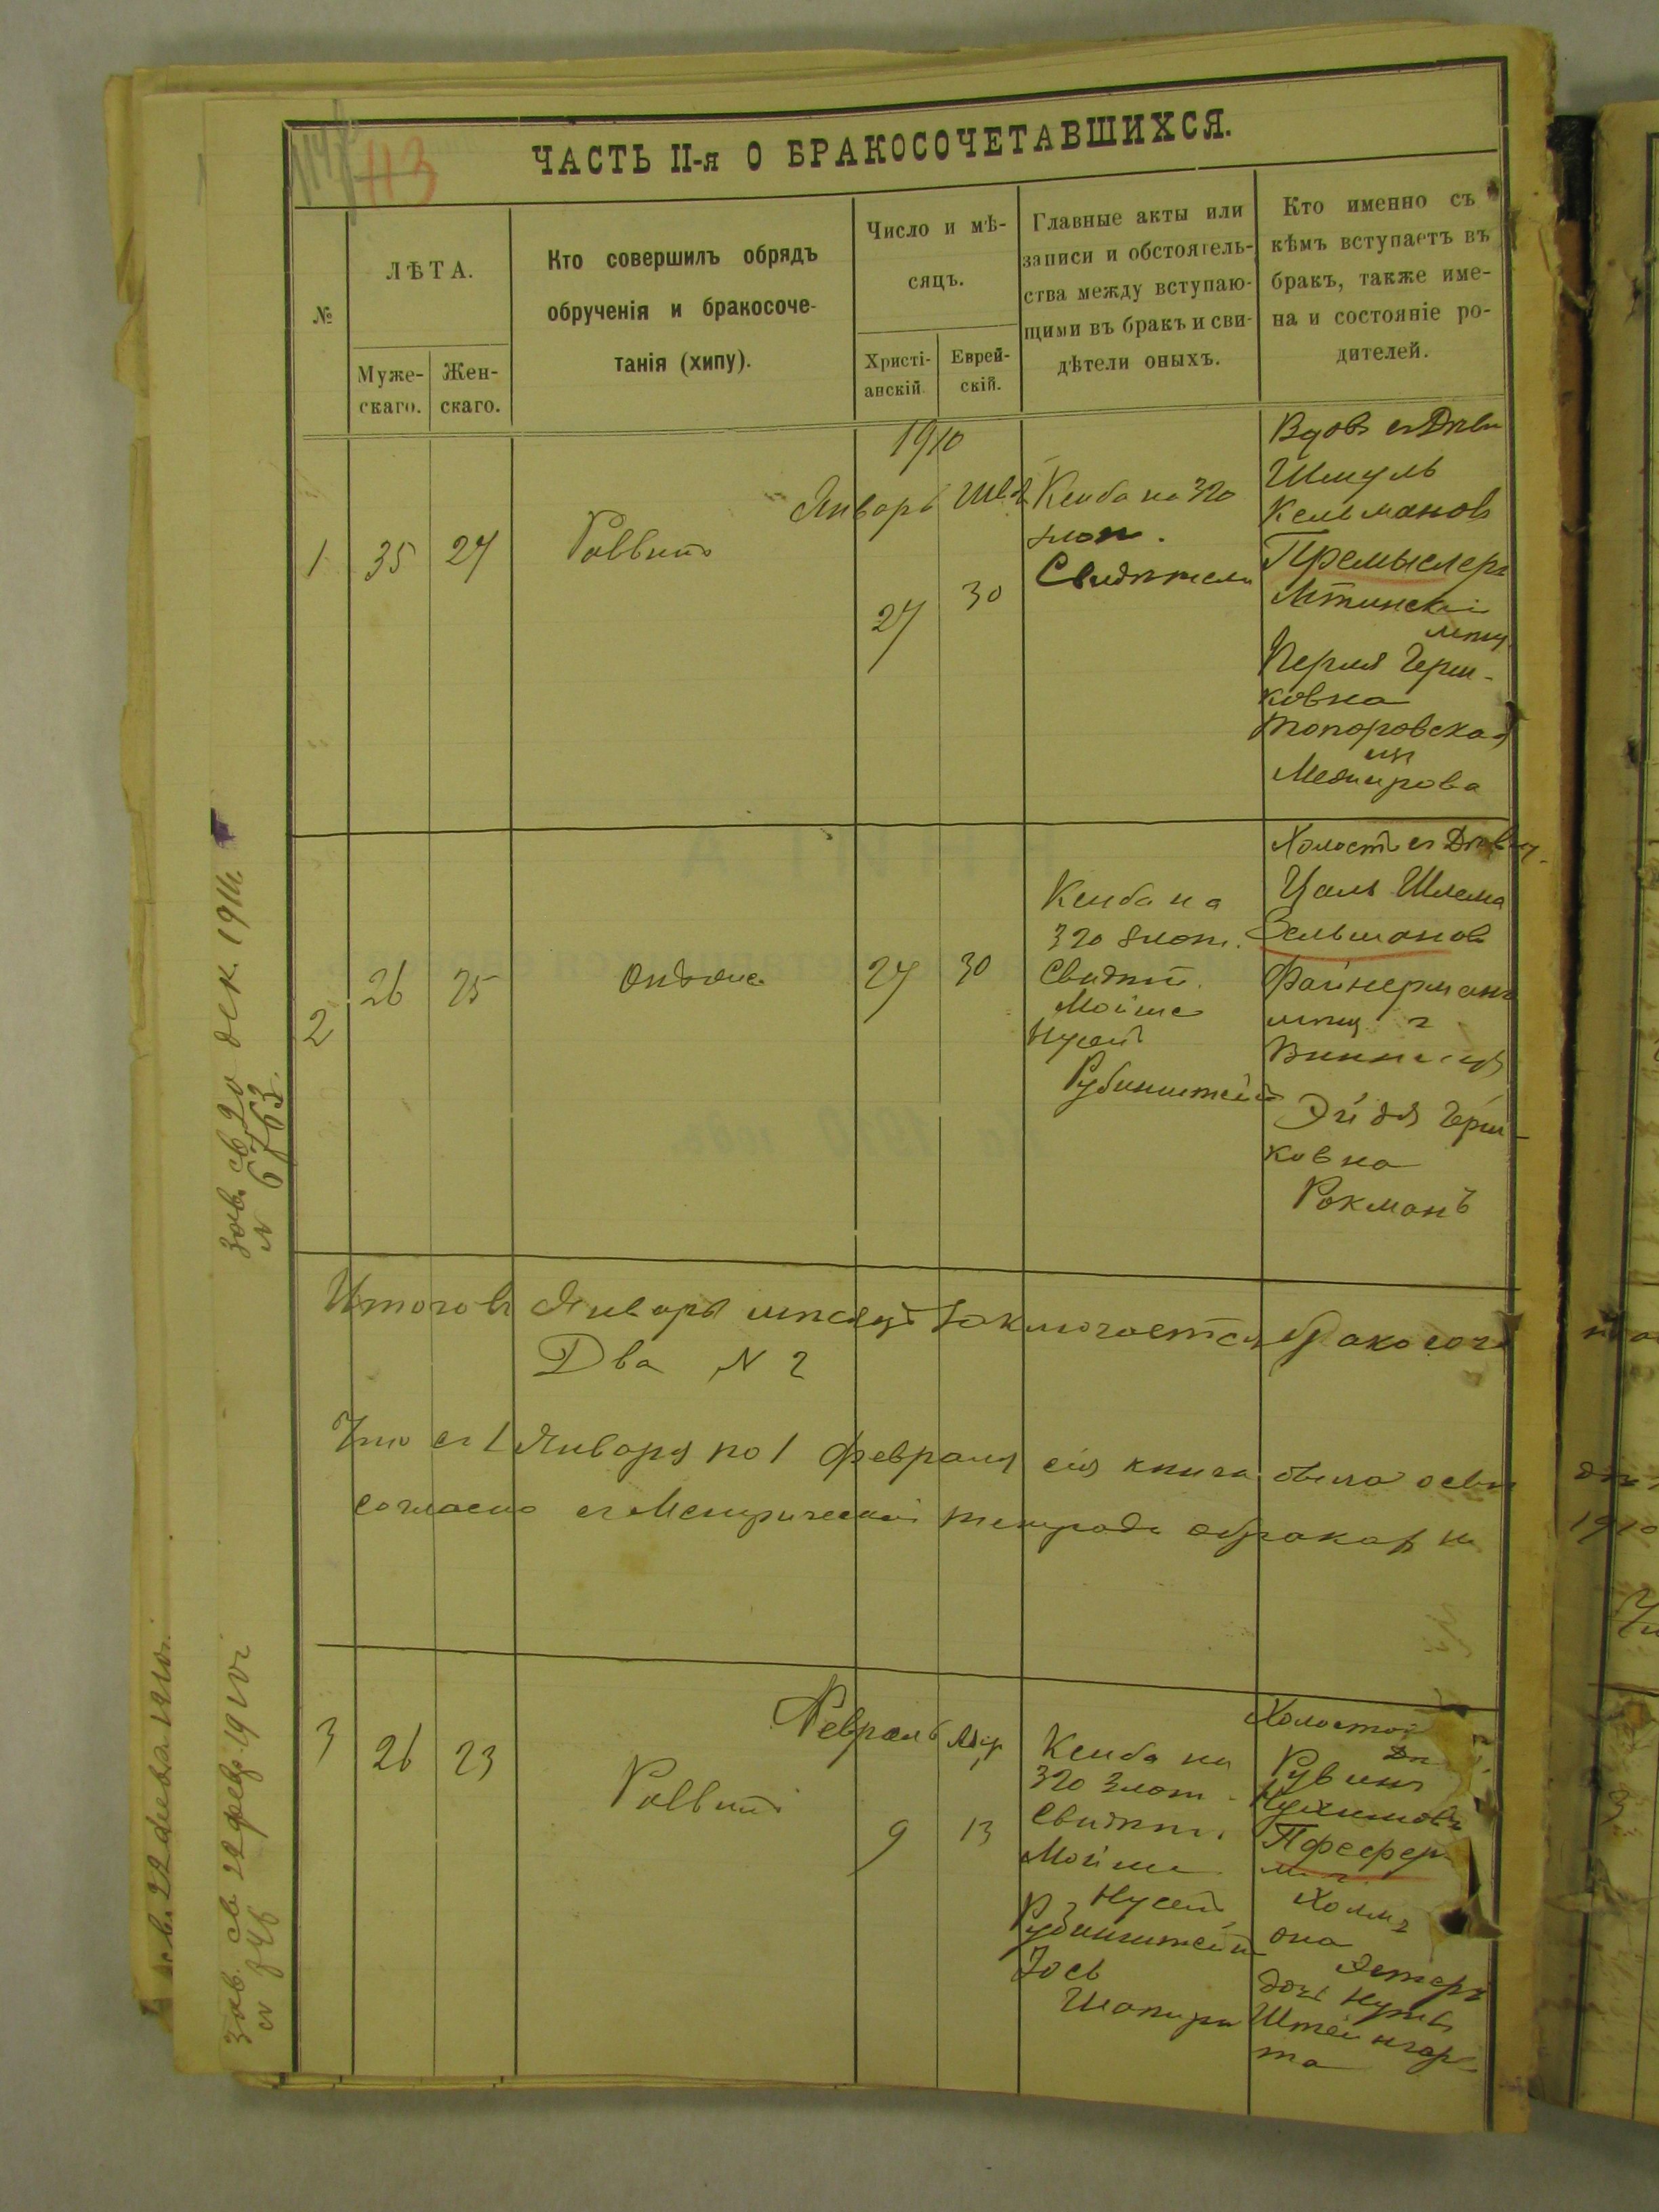 113
ЧАСТЬ II-я О БРАКОСОЧЕТАВШИХСЯ.
№
ЛѢТА.
Муже-
скаго.
Жен-
скаго.
Кто совершилъ обрядъ
обрученія и бракосоче-
танія (хипу).
Число и мѣ-
сяцъ.
Христі-
анскій.
Еврей-
скій.
Главные акты или
записи и обстоятель-
ства между вступаю-
щими въ бракъ и сви-
дѣтели оныхъ.
Кто именно съ
кѣмъ вступаетъ въ
бракъ, также име-
на и состояніе ро-
дителей.
1910
Январь Шв
1 35 27
Раввинъ
27 30
Ксиба на 320
злот.
Свидѣтели
Вдовъ съ Дѣви
Шмуль
Кельмановъ
Премыслеръ
Лѣтинскій
мѣщ
Перля Герш-
ковна
Топоровская
изъ
Межирова
2 26 25
Онъ же
27 30
Ксиба на
320 злот.
Свидѣт.
Мойше
Нусей
Рубинштейн
Холостъ съ Дѣвиц.
Цаль Шлема
Зельмановъ
Файнерманъ
мѣщ г
Винница
Эйдя Герш-
ковна
Рокманъ
Итого въ Январѣ мѣсяцѣ заключается бракосоч
Два № 2
Что съ 1 Января по 1 Февраля сія книга была осви
согласно съ Метрической тетради о бракахъ
3 26 23
Раввинъ
Февраль Адр
9 13
Ксиба на
320 злот.
Свидѣт.
Мойше
Нусей
Рубинштейн
Іось
Шапиры
Холостой
Дѣ
Рувинъ
Нухимовъ
Пфеферъ
Холмъ
она
Эстеръ
дочь Нуты
Штейнгар-
та
зав. св. 20 дек. 1911г.
№ 6763.
зав. св. 22 февр. 1910г
№ 746